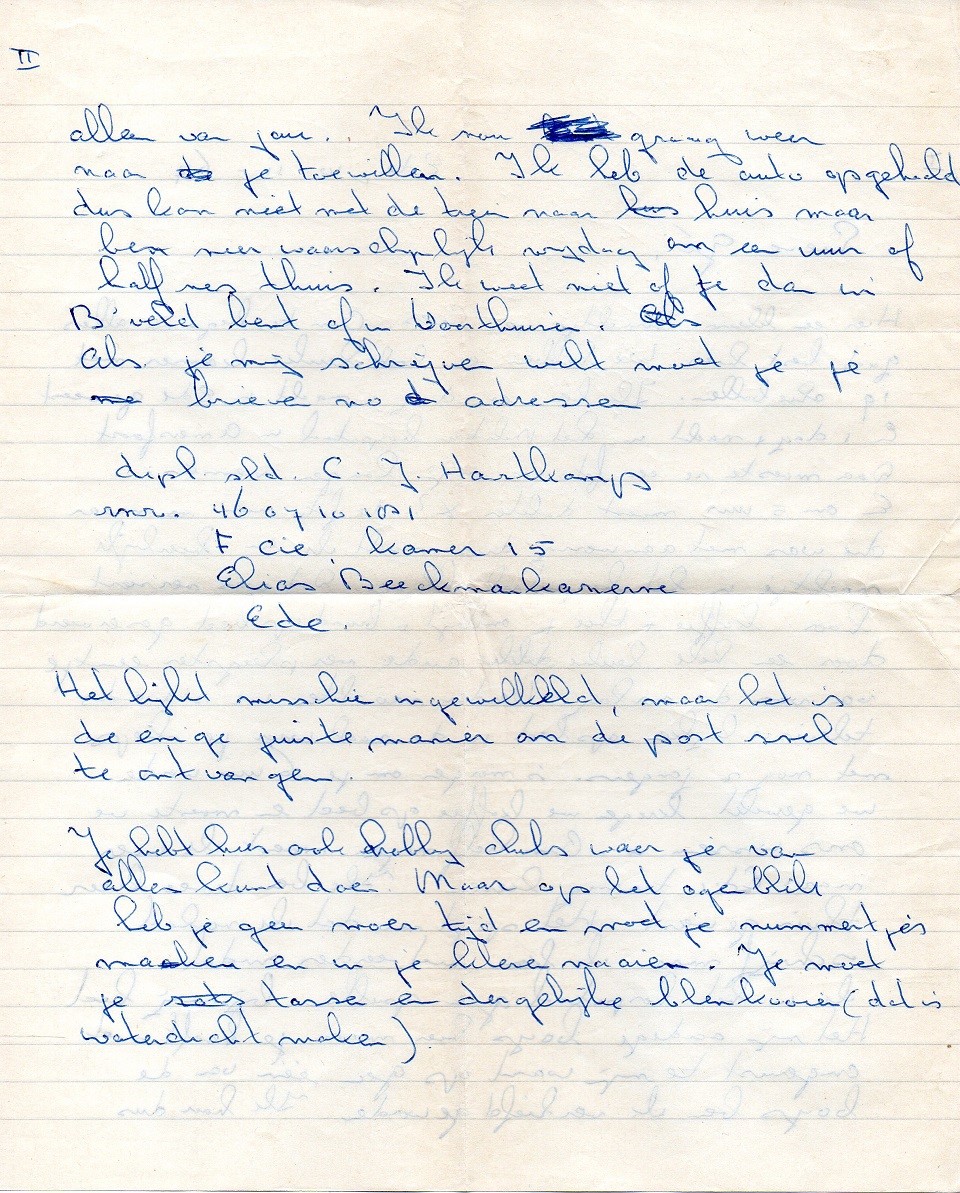 II
alleen van jou.. Ik zou graag weer
naar je toe willen. Ik heb de auto opgehaald
dus kan niet met de trein naar huis maar
ben zeer waarschijnlijk vrijdag om een uur of
half zes thuis. Ik weet niet of je dan in
B'veld bent of in Voorthuizen.
Als je mij schrijven wilt moet je je
brieve zo adressen
dipl sld. C. J. Hartkamps
rnr. 46 07 10
F cie, kamer 15
Elias Beeckmankazerne
Ede.
Het lijkt misschie ingewikkeld, maar het is
de enige juiste manier om de post snel
te ontvangen.
Je hebt hier ook hobby clubs waar je van
alles kunt doen. Maar op het ogenblik
heb je geen moer tijd en moet je nummertjes
maken en in je kleren naaien. Je moet
je tasse en dergelijke blenkooien (dat is
waterdicht maken).